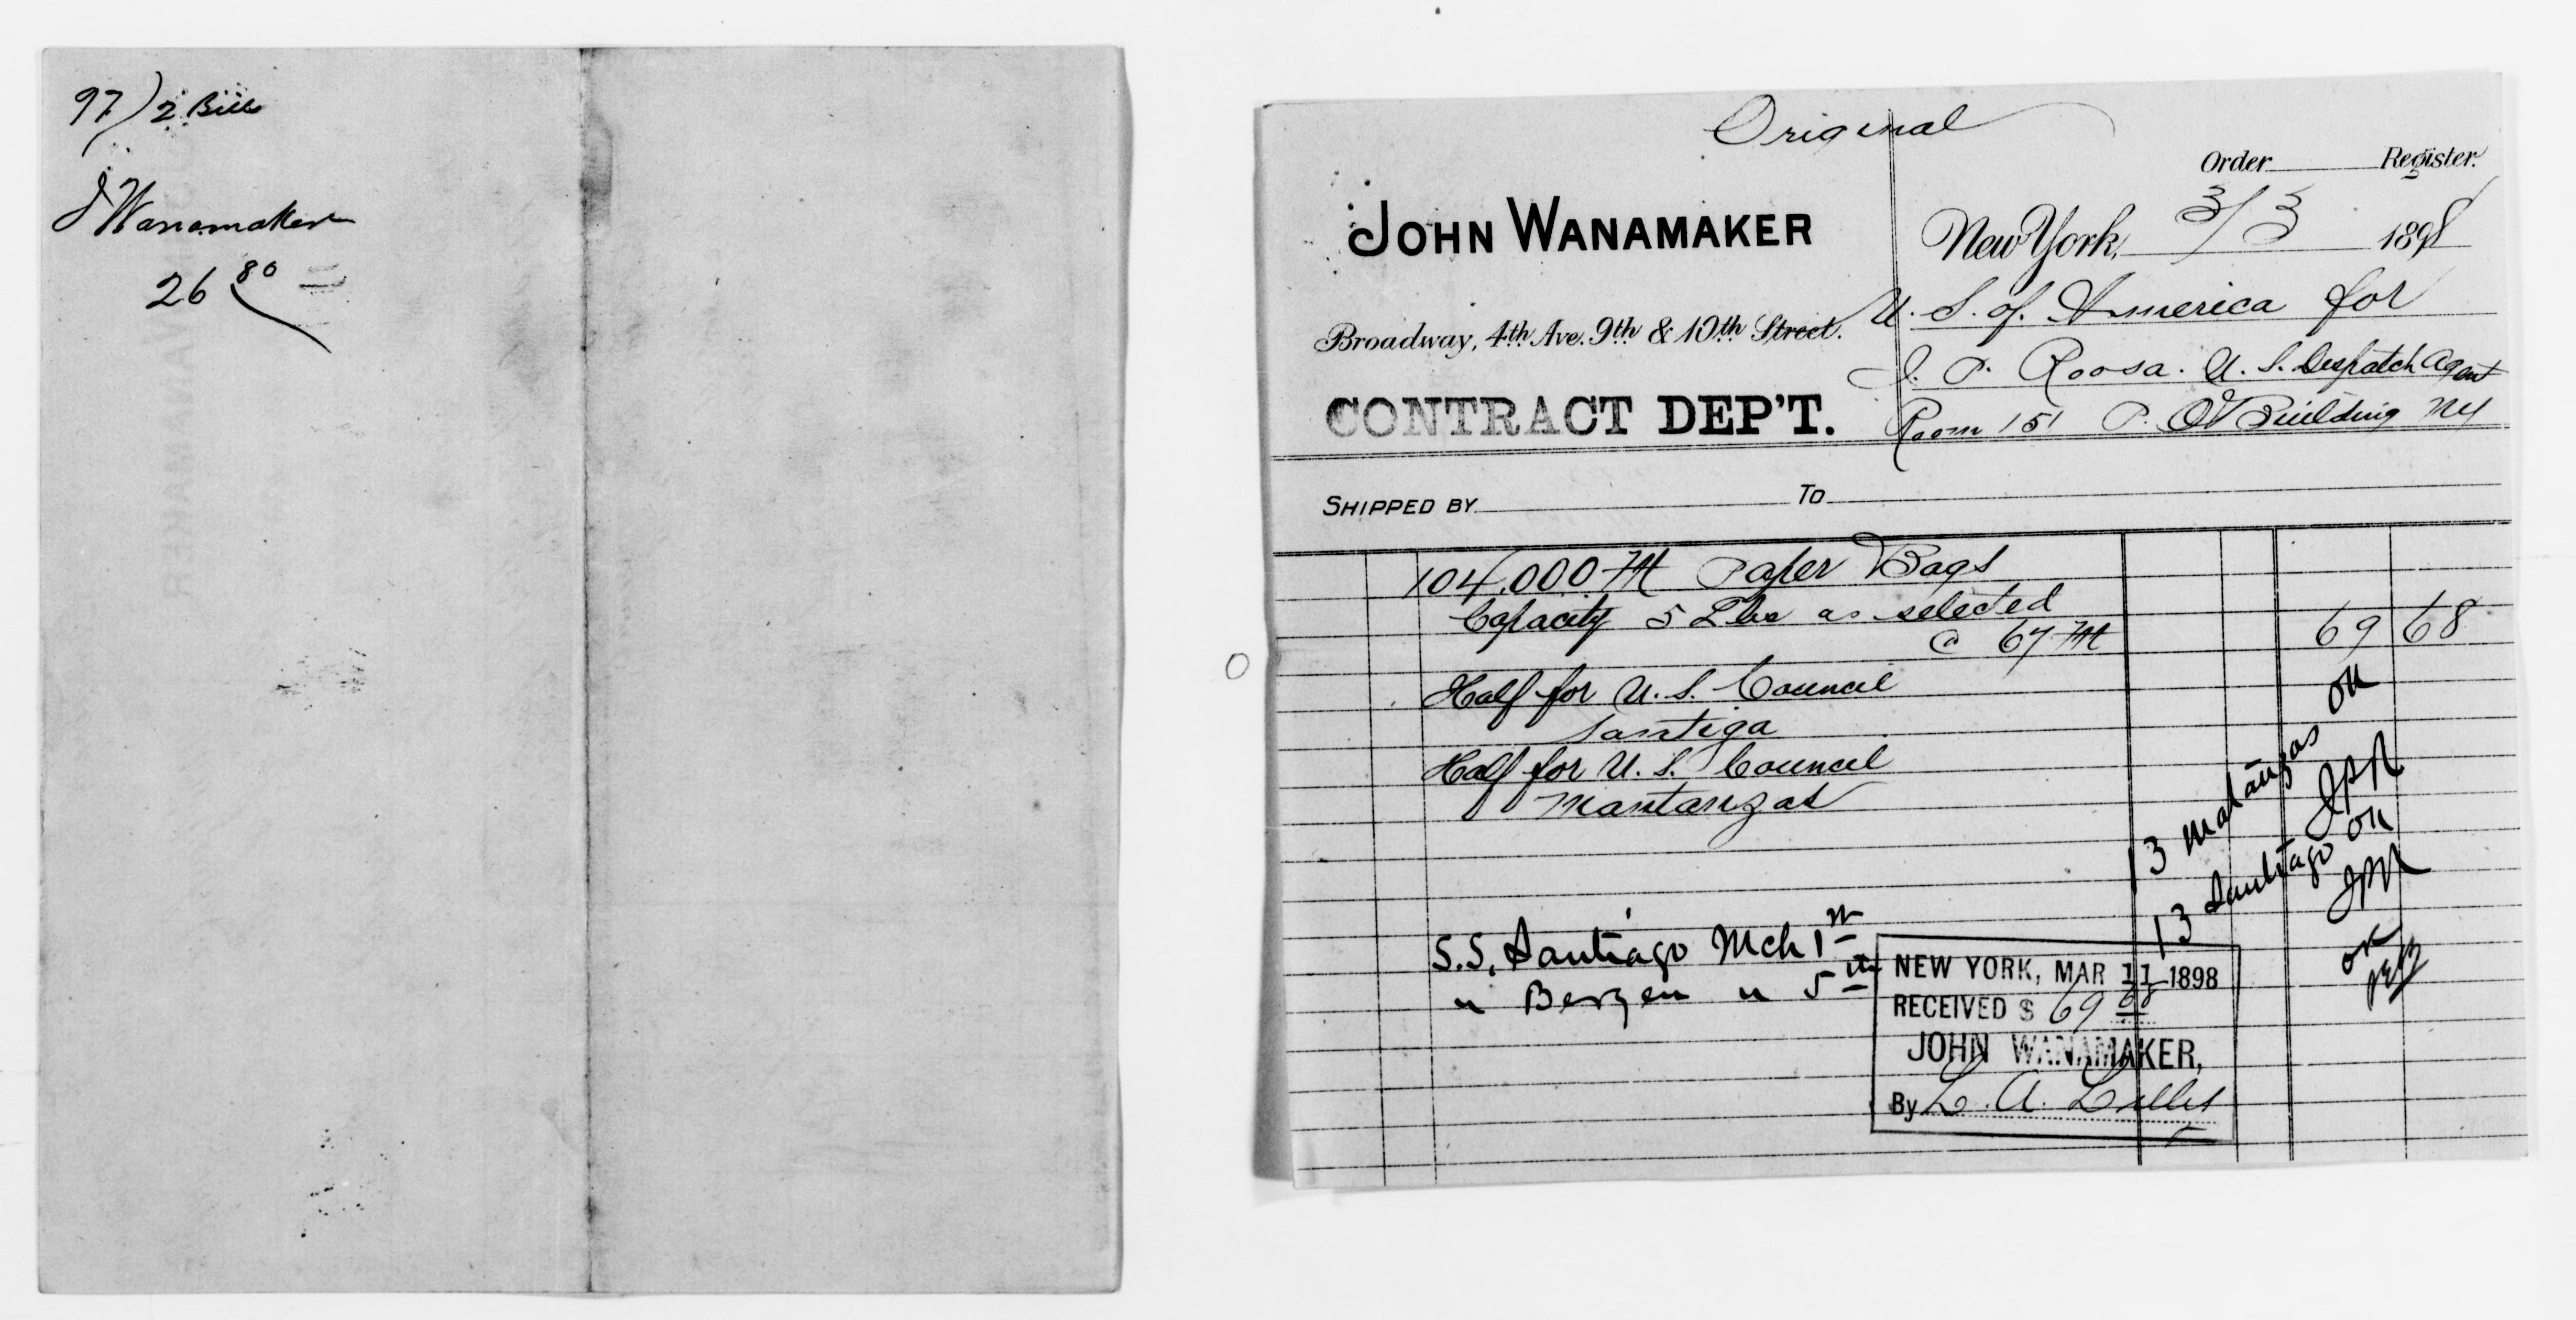 97) 2 Bills
J Wanamaker
26 80
Original
Order Register.
JOHN WANAMAKER
New York, 3/3 1898
Broadway, 4th Ave. 9th & 10th Street.
U. S. of America for
J. P. Roosa. U. S. Despatch Agent
CONTRACT DEP'T.
Room 151 P. O. Building NY
SHIPPED BY To
104,000 M Paper Bags
Capacity 5 Lbs as selected
@ 67 M 69 68
Half for U. S. Council
Santiga
Half for U. S. Council
Mantanzas
13 Matanzas OK
JPR
13 Santiago OK
JPR
OK
S.S. Santiago Mch 1st
" Bergen " 5th
NEW YORK, MAR 11 1898
RECEIVED $ 69 68
JOHN WANAMAKER,
By L. A. Lilles